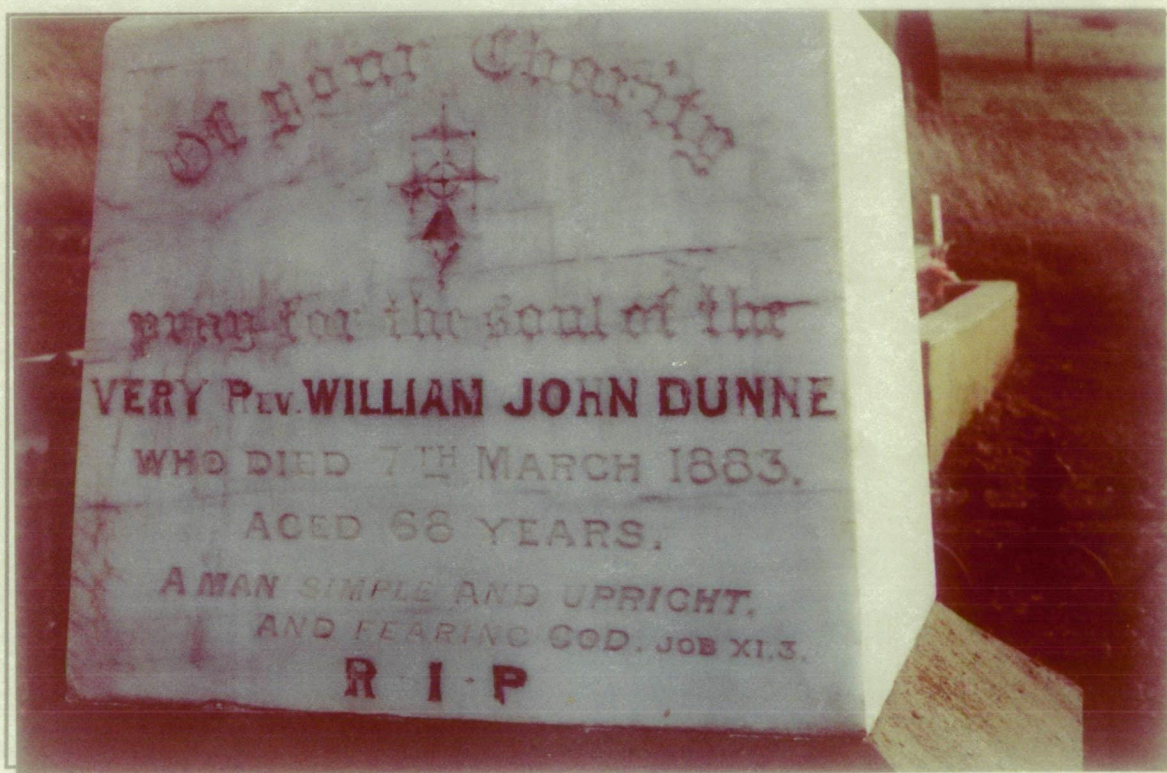 Of your Charity
pray for the soul of the
VERY REV. WILLIAM JOHN DUNNE
WHO DIED 7TH MARCH 1883.
AGED 68 YEARS.
A MAN SIMPLE AND UPRIGHT,
AND FEARING GOD. JOB XI.3.
R·I·P